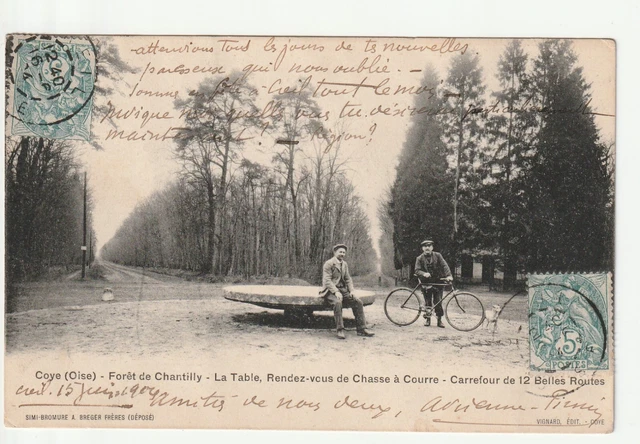 attendions tout les jours de tes nouvelles
paresseux qui nous oublié. —
Sommes a Creil tout le mois.
indique nous quelle vue tu désires
maintenant région?
Coye (Oise) - Forêt de Chantilly - La Table, Rendez-vous de Chasse à Courre - Carrefour de 12 Belles Routes
creil. 15 juin 1904 Amitiés de nous deux, Adrienne
SIMI-BROMURE A. BREGER FRÈRES (DÉPOSÉ)
VIGNARD, ÉDIT. - COYE
5c
POSTES